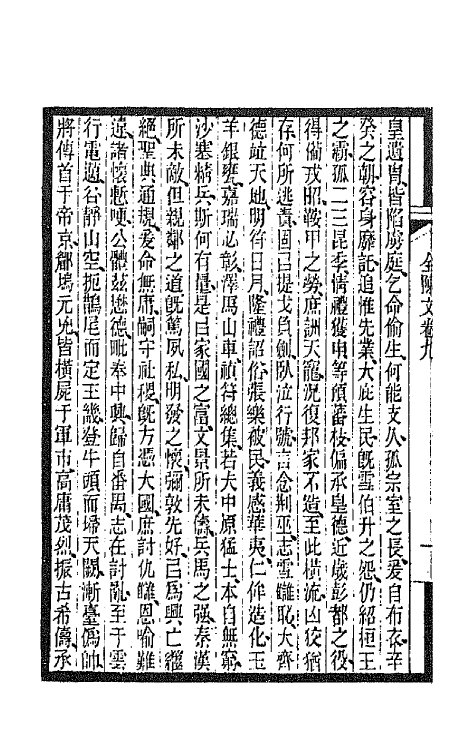 全陳文卷九
皇遺胄皆陷虜庭乞命偷生何能支久孤宗室之長爰自布衣辛
癸之朝容身靡託追惟先業大庇生民旣雪伯升之怨仍紹桓王
之霸孤二三昆季情禮獲申等預蕃枝偏承皇德近歲彭都之役
得備戎昭鞍甲之勞庶詶天寵況復邦家不造至此橫流凶狡猶
存何所逃責固已提戈負劍臥泣行號言念荆巫志雪讎恥大齊
德竝天地明符日月隆禮詔俗張樂被民義感華夷仁侔造化玉
羊銀甕嘉瑞必彰澤馬山車禎符總集若夫中原猛士本自無窮
沙塞精兵斯何有量是曰家國之富文景所未儔兵馬之强秦漢
所未敵但親鄰之道旣篤夙私明發之懷彌敦先好已爲興亡繼
絕聖典通規爰命無庸嗣守社稷旣方憑大國庶討仇讎恩喻難
遠諸懷慙哽公體茲懋德毗奉中興歸自番禺志在討亂至于雲
行電邁谷靜山空扼鵲尾而定王畿登牛頭而埽天闕漸臺僞帥
將傳首于帝京郿塢元兇皆橫屍于軍市高庸茂烈振古希儔承